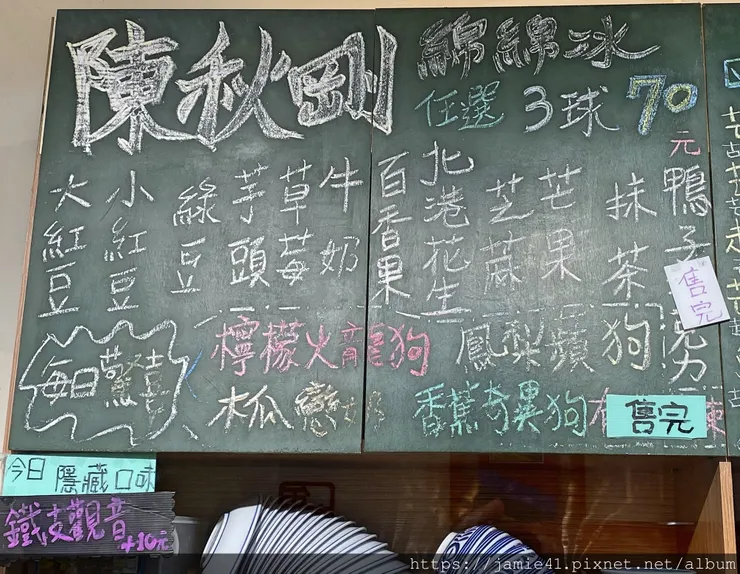 陳秋剛
綿綿冰
任選3球70元
大紅豆
小紅豆
綠豆
芋頭
草莓
牛奶
百香果
北港花生
芝麻
芒果
抹茶
鴨子
克力
售完
每日驚喜
檸檬火龍狗
鳳梨蘋狗
木瓜戀奶
香蕉奇異狗
售完
今日隱藏口味
鐵支觀音+10元
https://jamie41.pixnet.net/album